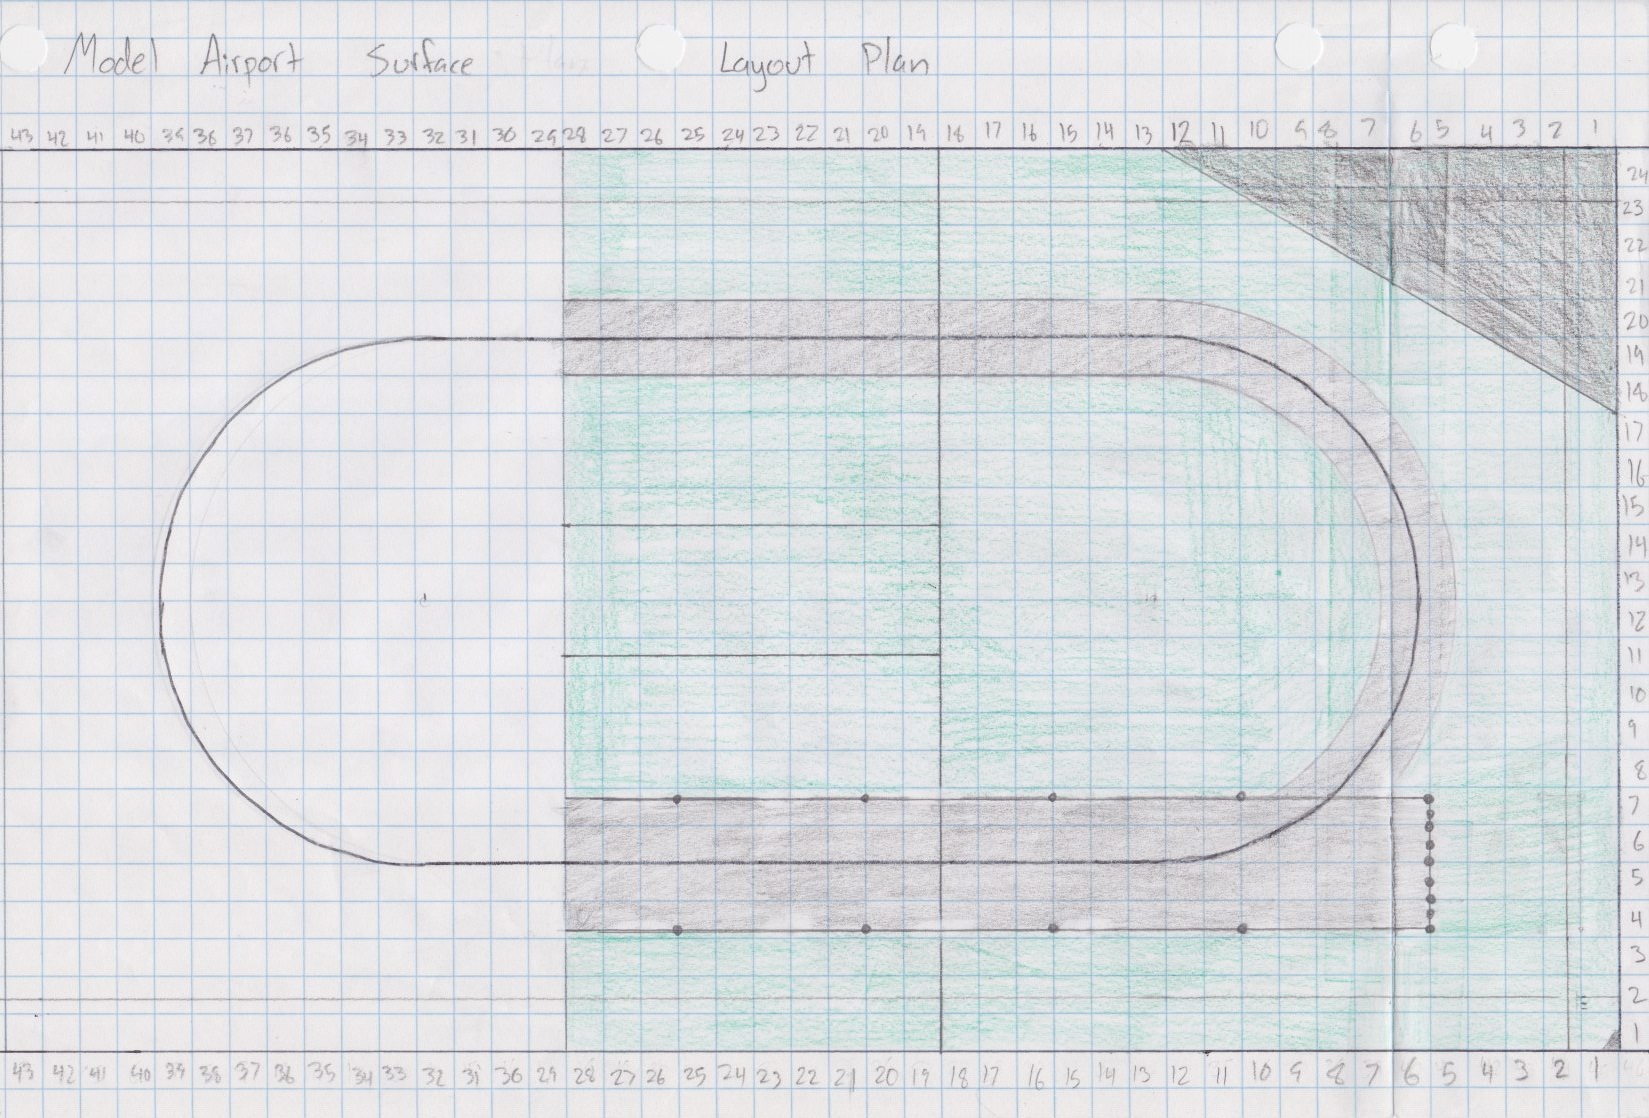 Model Airport Surface Layout Plan
43 42 41 40 39 38 37 36 35 34 33 32 31 30 29 28 27 26 25 24 23 22 21 20 19 18 17 16 15 14 13 12 11 10 9 8 7 6 5 4 3 2 1
24
23
22
21
20
19
18
17
16
15
14
13
12
11
10
9
8
7
6
5
4
3
2
1
43 42 41 40 39 38 37 36 35 34 33 32 31 30 29 28 27 26 25 24 23 22 21 20 19 18 17 16 15 14 13 12 11 10 9 8 7 6 5 4 3 2 1